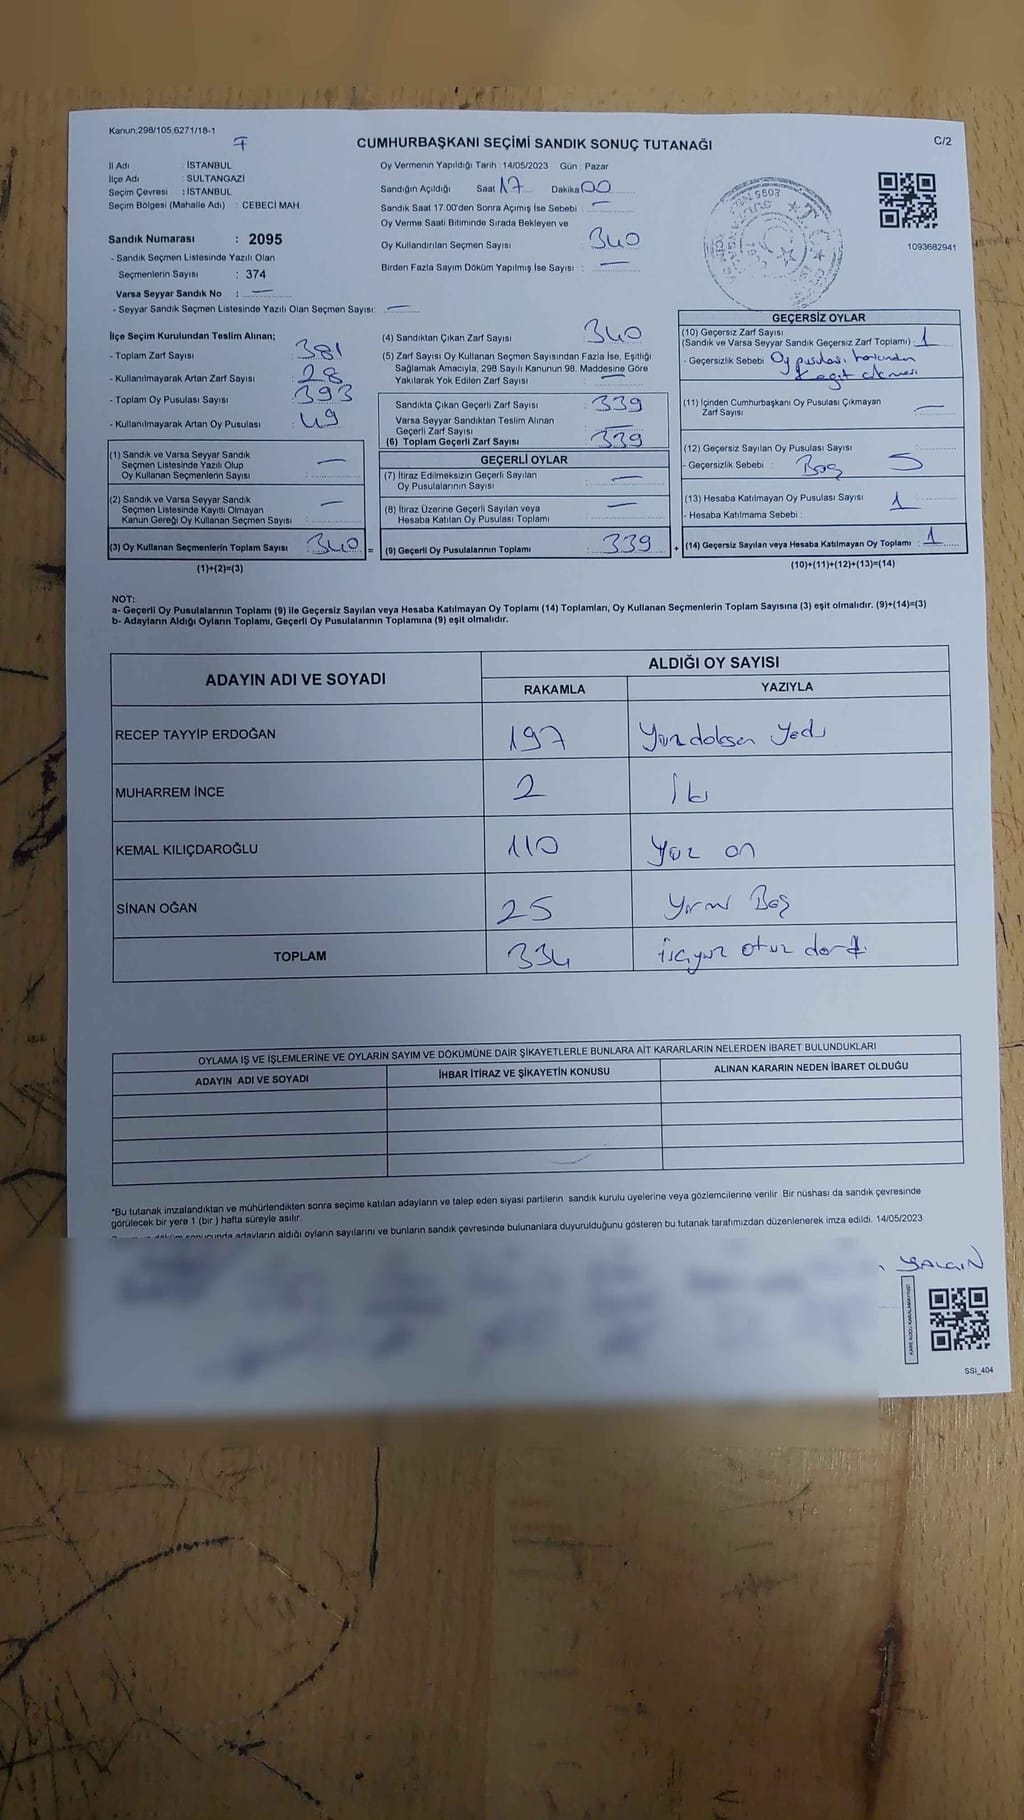 Kanun;298/105,6271/18-1
7
CUMHURBAŞKANI SEÇİMİ SANDIK SONUÇ TUTANAĞI
C/2
İl Adı : İSTANBUL
İlçe Adı : SULTANGAZİ
Seçim Çevresi : İSTANBUL
Seçim Bölgesi (Mahalle Adı) : CEBECİ MAH.
Sandık Numarası : 2095
- Sandık Seçmen Listesinde Yazılı Olan
Seçmenlerin Sayısı : 374
Varsa Seyyar Sandık No : —
- Seyyar Sandık Seçmen Listesinde Yazılı Olan Seçmen Sayısı: —
Oy Vermenin Yapıldığı Tarih : 14/05/2023 Gün : Pazar
Sandığın Açıldığı Saat 17 Dakika 00
Sandık Saat 17.00'den Sonra Açımış İse Sebebi : —
Oy Verme Saati Bitiminde Sırada Bekleyen ve
Oy Kullandırılan Seçmen Sayısı 340
Birden Fazla Sayım Döküm Yapılmış İse Sayısı : —
1093682941
İlçe Seçim Kurulundan Teslim Alınan;
- Toplam Zarf Sayısı : 381
- Kullanılmayarak Artan Zarf Sayısı : 28
- Toplam Oy Pusulası Sayısı : 393
- Kullanılmayarak Artan Oy Pusulası : 49
(1) Sandık ve Varsa Seyyar Sandık
Seçmen Listesinde Yazılı Olup
Oy Kullanan Seçmenlerin Sayısı : —
(2) Sandık ve Varsa Seyyar Sandık
Seçmen Listesinde Kayıtlı Olmayan
Kanun Gereği Oy Kullanan Seçmen Sayısı : —
(3) Oy Kullanan Seçmenlerin Toplam Sayısı : 340 =
(1)+(2)=(3)
(4) Sandıktan Çıkan Zarf Sayısı : 340
(5) Zarf Sayısı Oy Kullanan Seçmen Sayısından Fazla İse, Eşitliği
Sağlamak Amacıyla, 298 Sayılı Kanunun 98. Maddesine Göre
Yakılarak Yok Edilen Zarf Sayısı : —
Sandıkta Çıkan Geçerli Zarf Sayısı : 339
Varsa Seyyar Sandıktan Teslim Alınan
Geçerli Zarf Sayısı : —
(6) Toplam Geçerli Zarf Sayısı : 339
GEÇERLİ OYLAR
(7) İtiraz Edilmeksizin Geçerli Sayılan
Oy Pusulalarının Sayısı : —
(8) İtiraz Üzerine Geçerli Sayılan veya
Hesaba Katılan Oy Pusulası Toplamı : —
(9) Geçerli Oy Pusulalarının Toplamı : 339 +
GEÇERSİZ OYLAR
(10) Geçersiz Zarf Sayısı
(Sandık ve Varsa Seyyar Sandık Geçersiz Zarf Toplamı) : 1
- Geçersizlik Sebebi : Oy pusulası haricinden
Kağıt çıkması
(11) İçinden Cumhurbaşkanı Oy Pusulası Çıkmayan
Zarf Sayısı : —
(12) Geçersiz Sayılan Oy Pusulası Sayısı
- Geçersizlik Sebebi : Boş 5
(13) Hesaba Katılmayan Oy Pusulası Sayısı : 1
- Hesaba Katılmama Sebebi :
(14) Geçersiz Sayılan veya Hesaba Katılmayan Oy Toplamı : 1
(10)+(11)+(12)+(13)=(14)
NOT:
a- Geçerli Oy Pusulalarının Toplamı (9) ile Geçersiz Sayılan veya Hesaba Katılmayan Oy Toplamı (14) Toplamları, Oy Kullanan Seçmenlerin Toplam Sayısına (3) eşit olmalıdır. (9)+(14)=(3)
b- Adayların Aldığı Oyların Toplamı, Geçerli Oy Pusulalarının Toplamına (9) eşit olmalıdır.
ADAYIN ADI VE SOYADI
ALDIĞI OY SAYISI
RAKAMLA YAZIYLA
RECEP TAYYİP ERDOĞAN 197 Yüzdoksan Yedi
MUHARREM İNCE 2 İki
KEMAL KILIÇDAROĞLU 110 Yüz on
SİNAN OĞAN 25 Yirmi Beş
TOPLAM 334 üçyüz otuz dört
OYLAMA İŞ VE İŞLEMLERİNE VE OYLARIN SAYIM VE DÖKÜMÜNE DAİR ŞİKAYETLERLE BUNLARA AİT KARARLARIN NELERDEN İBARET BULUNDUKLARI
ADAYIN ADI VE SOYADI İHBAR İTİRAZ VE ŞİKAYETİN KONUSU ALINAN KARARIN NEDEN İBARET OLDUĞU
*Bu tutanak imzalandıktan ve mühürlendikten sonra seçime katılan adayların ve talep eden siyasi partilerin sandık kurulu üyelerine veya gözlemcilerine verilir. Bir nüshası da sandık çevresinde
görülecek bir yere 1 (bir ) hafta süreyle asılır.
adayların aldığı oyların sayılarını ve bunların sandık çevresinde bulunanlara duyurulduğunu gösteren bu tutanak tarafımızdan düzenlenerek imza edildi. 14/05/2023
YALÇIN
KARE KODU KARALAMAYINIZ!
SSI_404